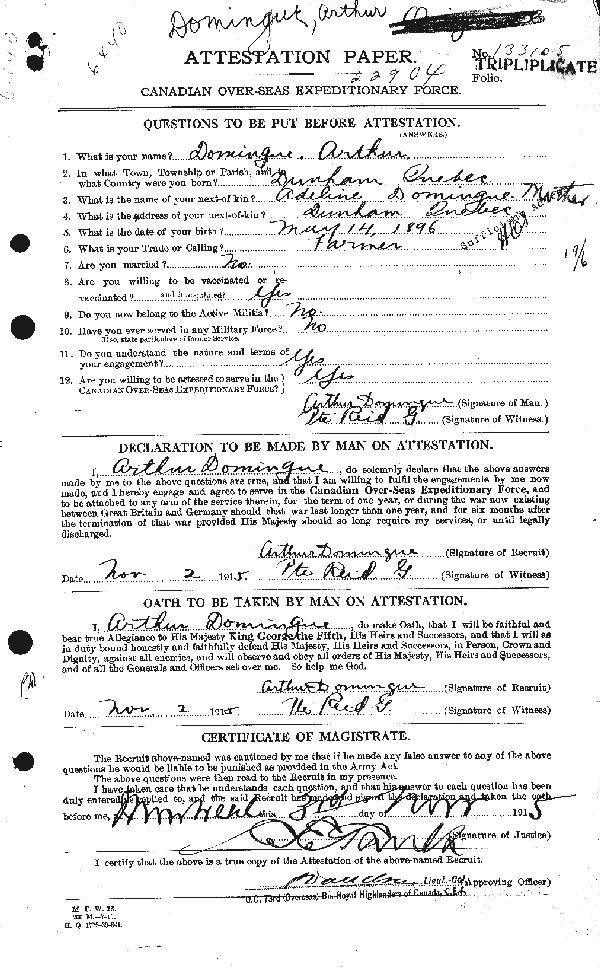 Domingue, Arthur
6440
ATTESTATION PAPER.
No. 133105
TRIPLIPLICATE
22904
Folio.
CANADIAN OVER-SEAS EXPEDITIONARY FORCE.
QUESTIONS TO BE PUT BEFORE ATTESTATION.
(ANSWERS.)
1. What is your name? Domingue. Arthur
2. In what Town, Township or Parish, and in
what Country were you born? Dunham Quebec
3. What is the name of your next-of kin? Adeline Domingue Mother
4. What is the address of your next-of-kin? Dunham Quebec
5. What is the date of your birth? May 14, 1896
6. What is your Trade or Calling? Farmer
7. Are you married? No.
8. Are you willing to be vaccinated or re-
vaccinated? Yes
9. Do you now belong to the Active Militia? No.
10. Have you ever served in any Military Force? No
Also, state particulars of former Service.
11. Do you understand the nature and terms of
your engagement? Yes
12. Are you willing to be attested to serve in the
CANADIAN OVER-SEAS EXPEDITIONARY FORCE? Yes
Arthur Domingue (Signature of Man.)
Pte Reid G (Signature of Witness.)
DECLARATION TO BE MADE BY MAN ON ATTESTATION.
I, Arthur Domingue, do solemnly declare that the above answers
made by me to the above questions are true, and that I am willing to fulfil the engagements by me now
made, and I hereby engage and agree to serve in the Canadian Over-Seas Expeditionary Force, and
to be attached to any arm of the service therein, for the term of one year, or during the war now existing
between Great Britain and Germany should that war last longer than one year, and for six months after
the termination of that war provided His Majesty should so long require my services, or until legally
discharged.
Arthur Domingue (Signature of Recruit)
Date Nov 2 1915. Pte Reid G (Signature of Witness)
OATH TO BE TAKEN BY MAN ON ATTESTATION.
I, Arthur Domingue, do make Oath, that I will be faithful and
bear true Allegiance to His Majesty King George the Fifth, His Heirs and Successors, and that I will as
in duty bound honestly and faithfully defend His Majesty, His Heirs and Successors, in Person, Crown and
Dignity, against all enemies, and will observe and obey all orders of His Majesty, His Heirs and Successors,
and of all the Generals and Officers set over me. So help me God.
Arthur Domingue (Signature of Recruit)
Date Nov 2 1915 Pte Reid G (Signature of Witness)
CERTIFICATE OF MAGISTRATE.
The Recruit above-named was cautioned by me that if he made any false answer to any of the above
questions he would be liable to be punished as provided in the Army Act.
The above questions were then read to the Recruit in my presence.
I have taken care that he understands each question, and that his answer to each question has been
duly entered as replied to, and the said Recruit has made and signed the declaration and taken the oath
before me, this day of 1915
(Signature of Justice)
I certify that the above is a true copy of the Attestation of the above-named Recruit.
Lieut-Col. (Approving Officer)
O.C. 73rd (Overseas) Bn. Royal Highlanders of Canada, C.E.F.